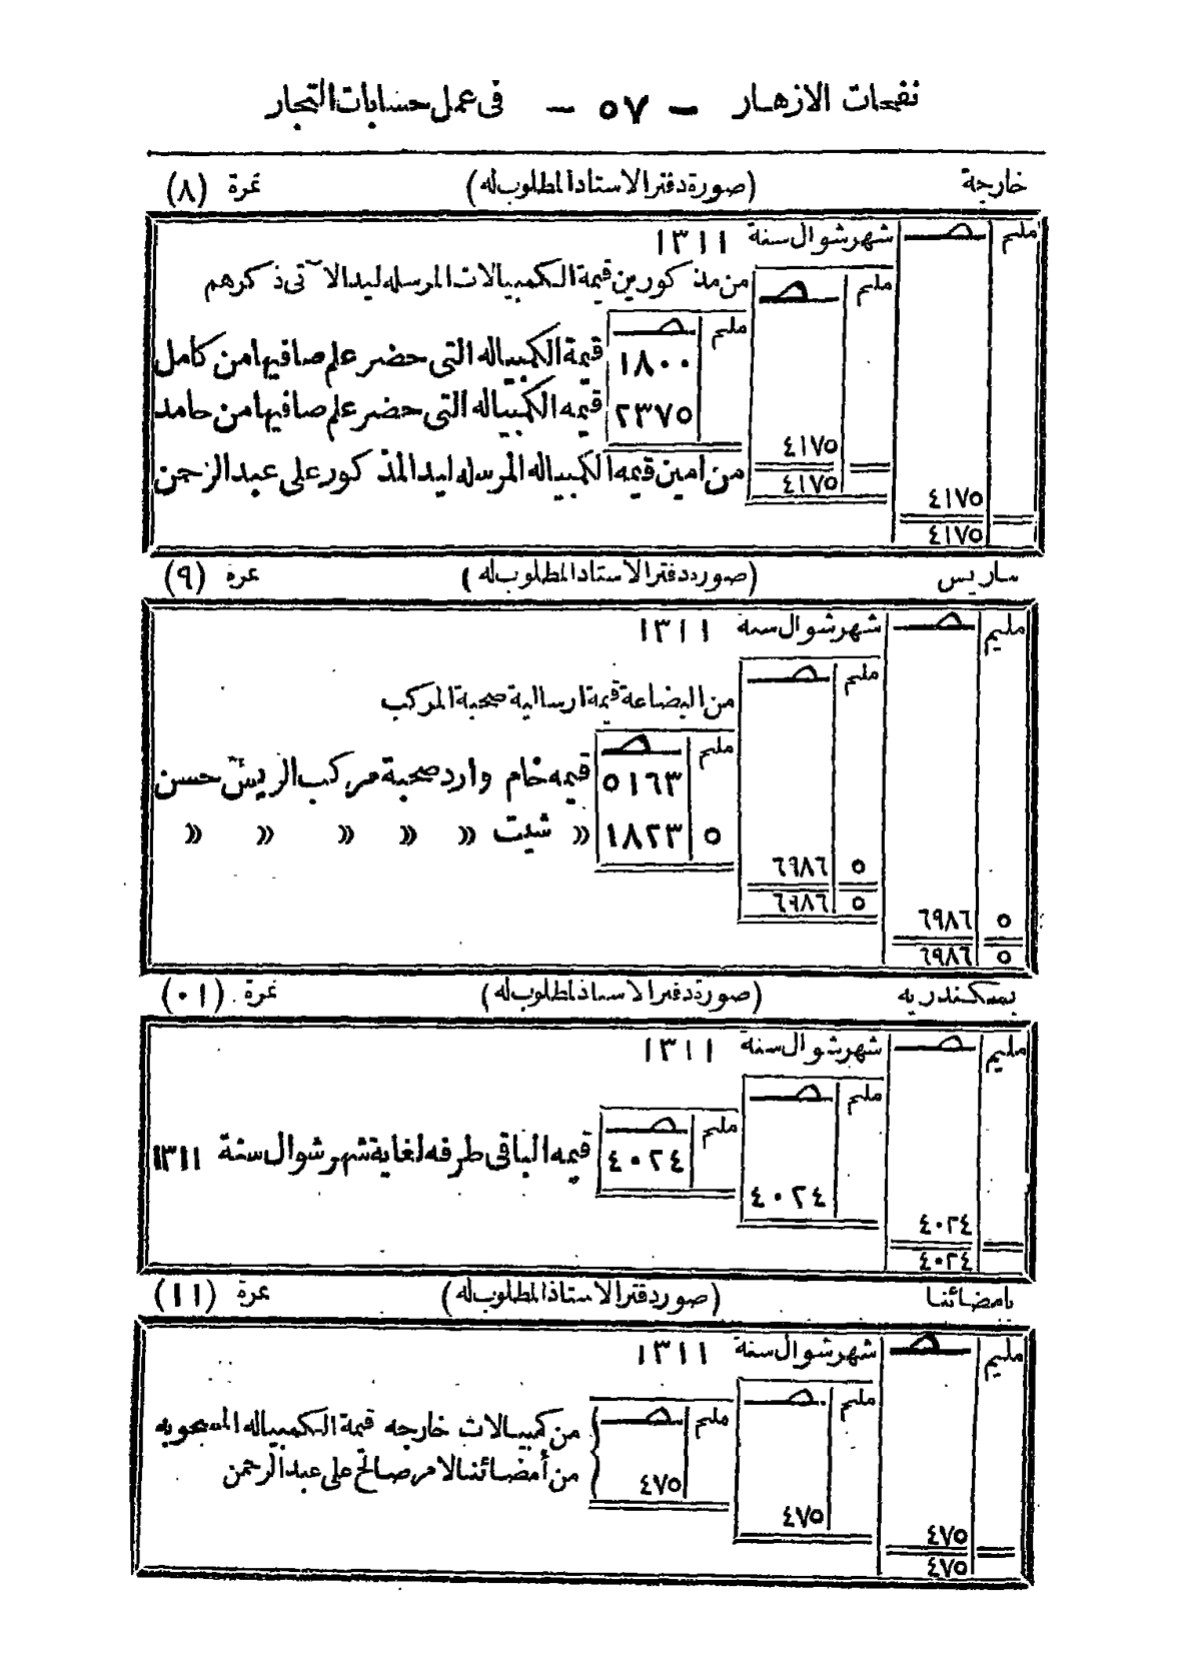 نفحات الازهار — ٥٧ — فى عمل حسابات التجار
خارجة (صورة دفتر الاستاذ المطلوب له) نمرة (٨)
مليم صـ شهر شوال سنة ١٣١١
مليم صـ من مذكورين قيمة الكمبيالات المرسله ليد الآتى ذكرهم
مليم صـ
١٨٠٠ قيمة الكمبياله التى حضر علم صافيها من كامل
٢٣٧٥ قيمه الكمبياله التى حضر علم صافيها من حامد
٤١٧٥
من امين قيمه الكمبياله المرسله ليد المذكور على عبد الرحمن
٤١٧٥
٤١٧٥
٤١٧٥
ساريس (صورة دفتر الاستاذ المطلوب له) نمرة (٩)
مليم صـ شهر شوال سنة ١٣١١
مليم صـ
من البضاعة قيمة ارسالية صحبة المركب
مليم صـ
٥١٦٣ قيمه خام وارد صحبة مركب الريس حسن
٥ ١٨٢٣ » شيت » » » » »
٥ ٦٩٨٦
٥ ٦٩٨٦
٥ ٦٩٨٦
٥ ٦٩٨٦
بسكندريه (صورة دفتر الاستاذ المطلوب له) نمرة (٠١)
مليم صـ شهر شوال سنة ١٣١١
مليم صـ
مليم صـ
٤٠٢٤ قيمه الباقى طرفه لغاية شهر شوال سنة ١٣١١
٤٠٢٤
٤٠٢٤
٤٠٢٤
بامضائنا (صورة دفتر الاستاذ المطلوب له) نمرة (١١)
مليم صـ شهر شوال سنة ١٣١١
مليم صـ
مليم صـ من كمبيالات خارجه قيمة الكمبياله المسحوبه
٤٧٥ من أمضائنا لامر صالح على عبد الرحمن
٤٧٥
٤٧٥
٤٧٥